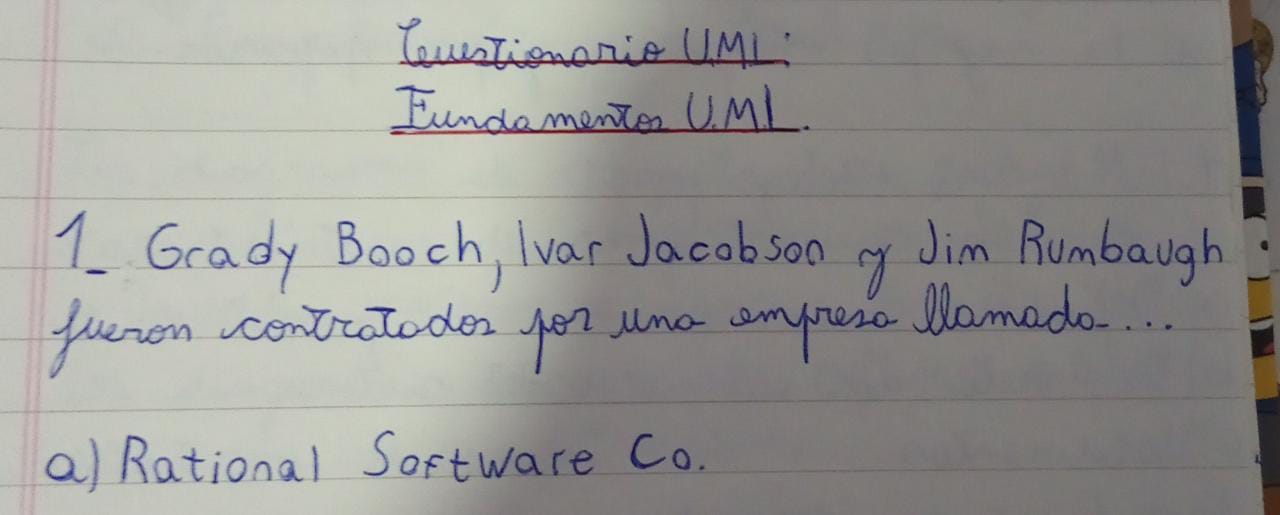 Cuestionario U.M.L:
Fundamentos U.M.L.
1_ Grady Booch, Ivar Jacobson y Jim Rumbaugh
fueron contratados por una empresa llamada...
a) Rational Software Co.